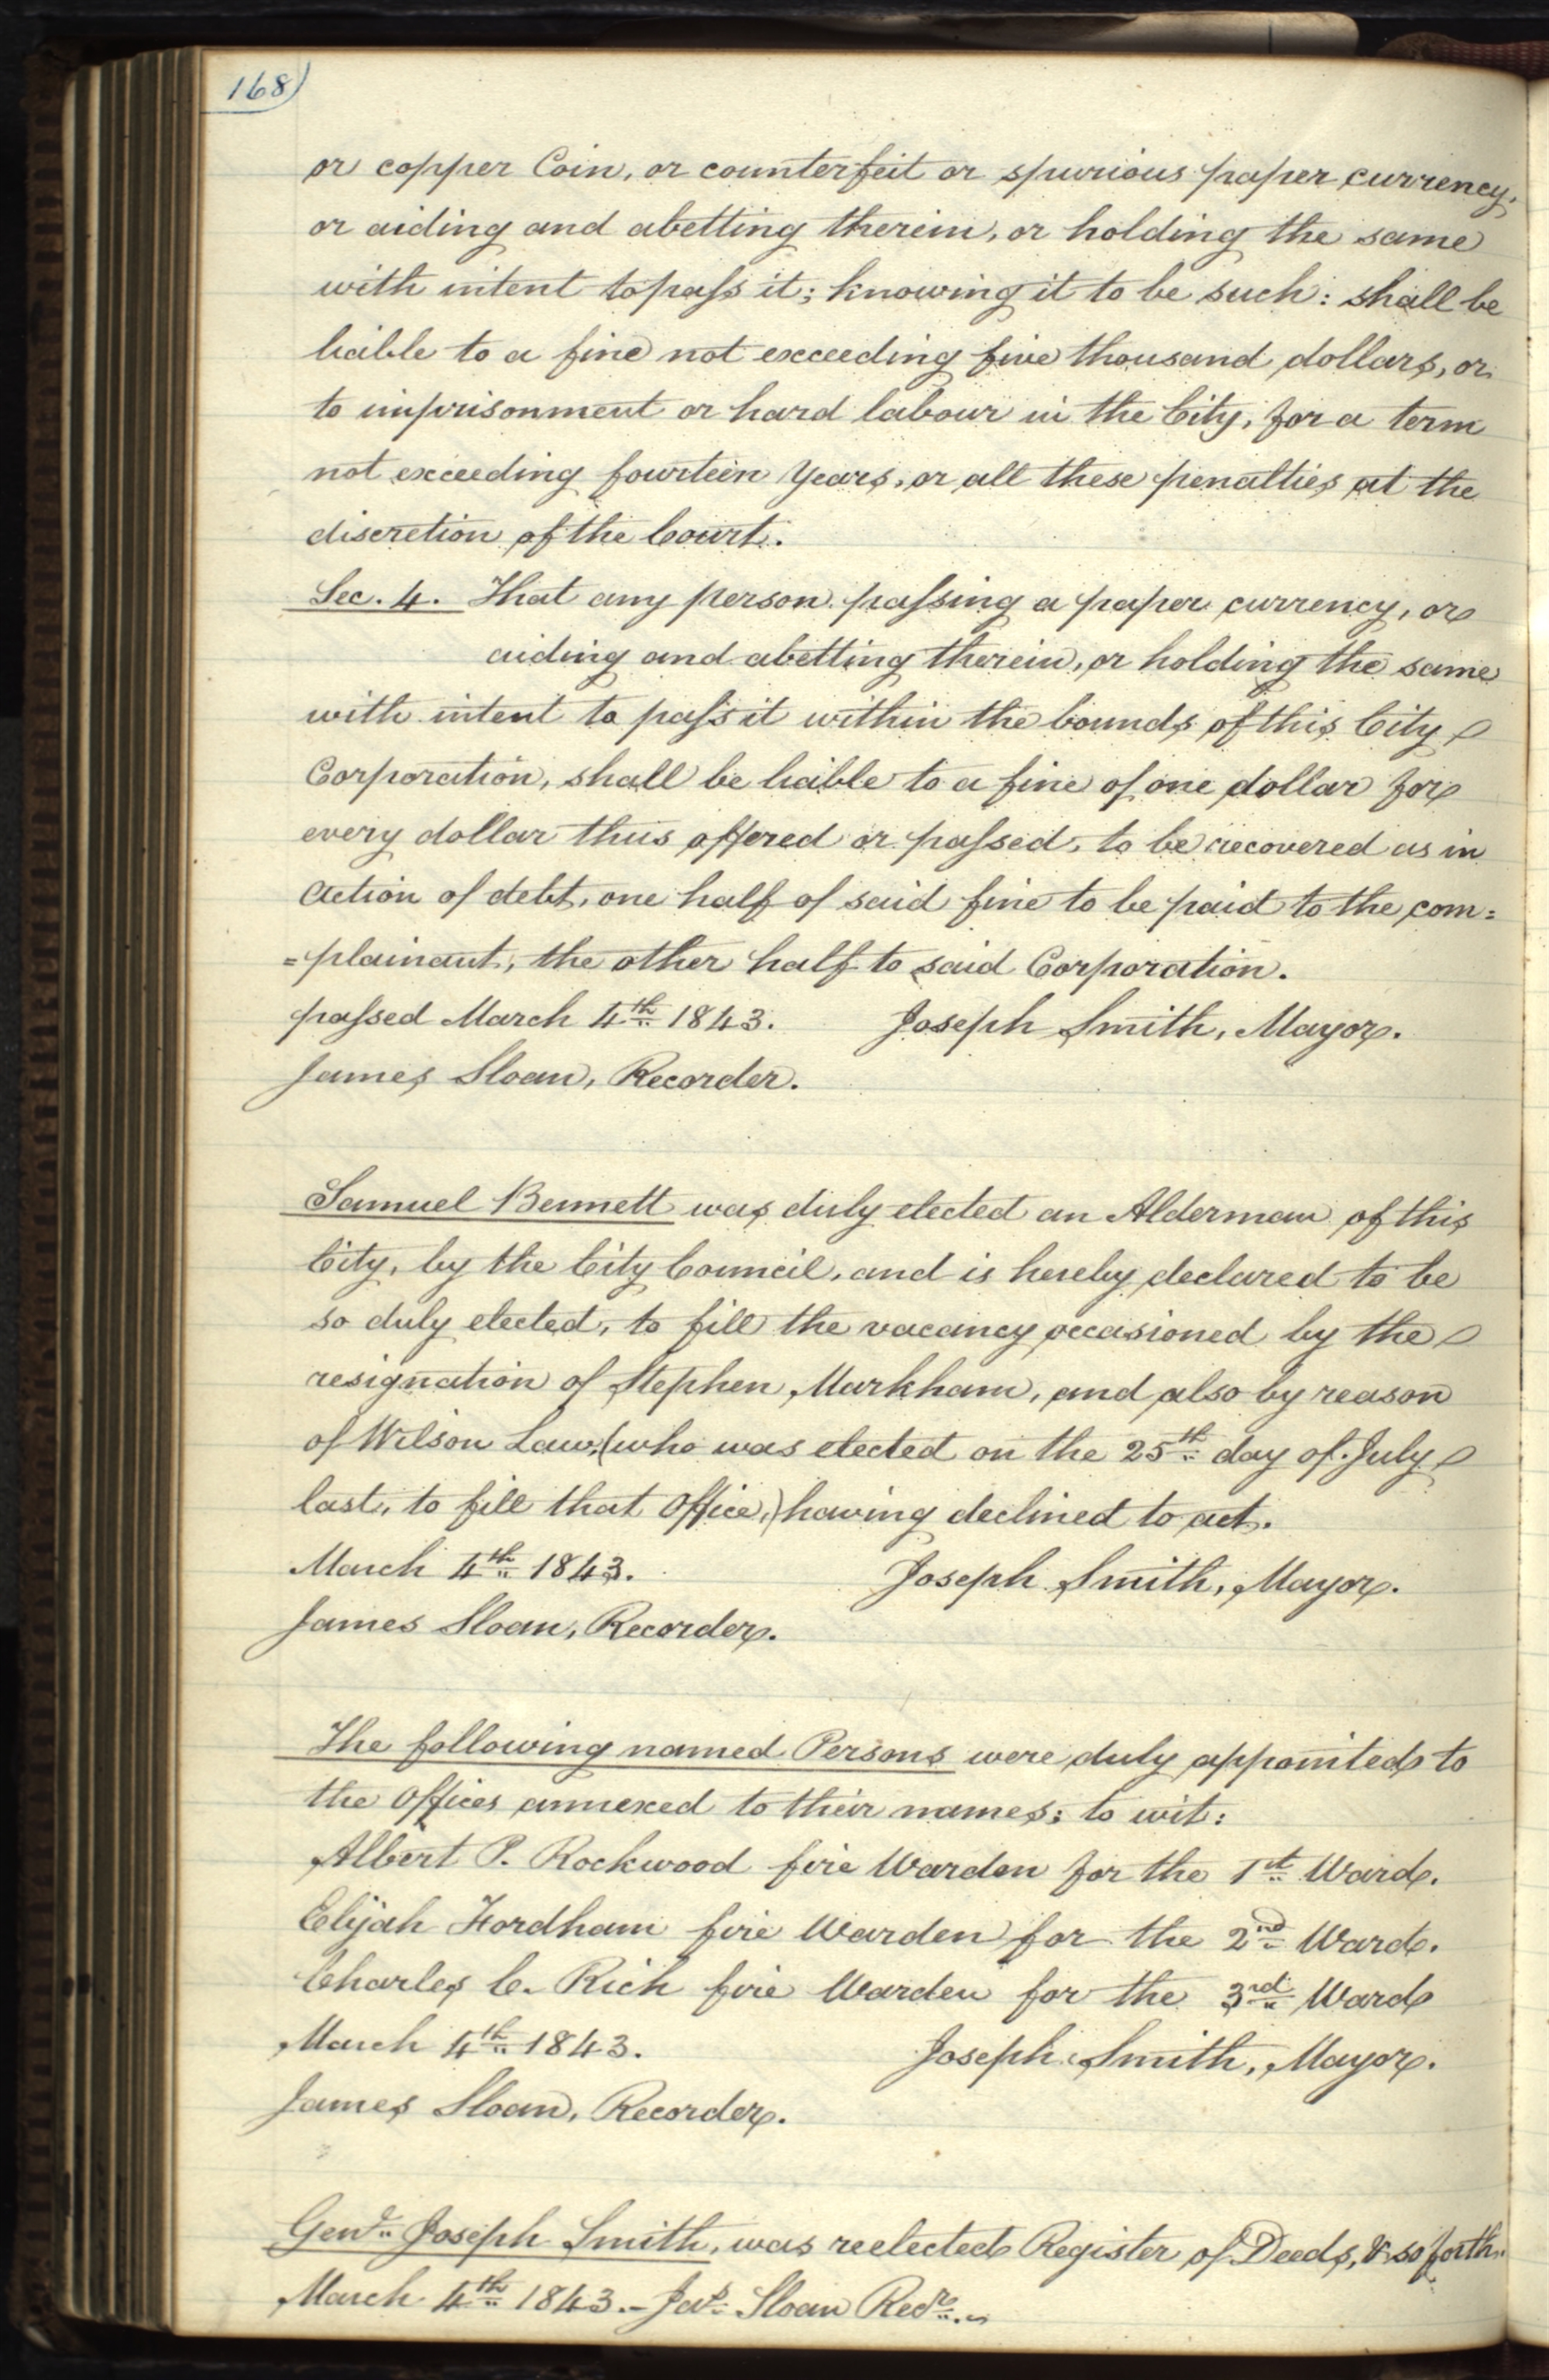 168)
or copper Coin, or counterfeit or spurious paper currency,
or aiding and abetting therein, or holding the same
with intent to pass it; knowing it to be such: shall be
liable to a fine not exceeding five thousand dollars, or
to imprisonment or hard labour in the City, for a term
not exceeding fourteen Years, or all these penalties at the
discretion of the Court.
Sec. 4. That any person passing a paper currency, or
aiding and abetting therein, or holding the same
with intent to pass it within the bounds of this City
Corporation, shall be liable to a fine of one dollar for
every dollar thus offered or passed, to be recovered as in
action of debt, one half of said fine to be paid to the com=
=plainant, the other half to said Corporation.
passed March 4th 1843. Joseph Smith, Mayor.
James Sloan, Recorder.
Samuel Bennett was duly elected an Alderman of this
City, by the City Council, and is hereby declared to be
so duly elected, to fill the vacancy occasioned by the
resignation of Stephen Markham, and also by reason
of Wilson Law, (who was elected on the 25th day of July
last, to fill that Office,) having declined to act.
March 4th 1843. Joseph Smith, Mayor.
James Sloan, Recorder.
The following named Persons were duly appointed to
the Offices annexed to their names; to wit:
Albert P. Rockwood fire Warden for the 1st Ward.
Elijah Fordham fire Warden for the 2nd Ward.
Charles C. Rich fire Warden for the 3rd Ward
March 4th 1843. Joseph Smith, Mayor.
James Sloan, Recorder.
Genl. Joseph Smith, was reelected Register of Deeds, & so forth.
March 4th 1843.- Jas. Sloan Recr.